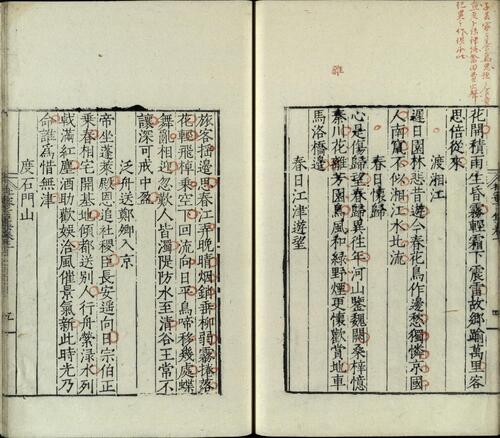 花開積雨生昏霧輕霜下震雷故鄉踰萬里客
思倍從來
渡湘江
遲日園林悲昔遊今春花鳥作邊愁獨憐京國
人南竄不似湘江水北流
春日懷歸
心是傷歸望春歸異往年河山鑒魏闕桑梓憶
秦川花雜芳園鳥風和綠野煙更懷歡賞地車
馬洛橋邊
春日江津遊望
旅客搖邊思春江弄晚晴烟銷垂柳弱霧捲落
花輕飛棹乗空下回流向日平鳥啼移幾處蝶
舞亂相迎忽歎人皆濁隄防水至清谷王常不
讓深可戒中盈
泛舟送鄭卿入京
帝坐蓬萊殿恩追社稷臣長安遥向日宗伯正
乗春相宅開基地傾都送別人行舟縈淥水列
戟滿紅塵酒助歡娛洽風催景氣新此時光乃
命誰爲惜無津
度石門山